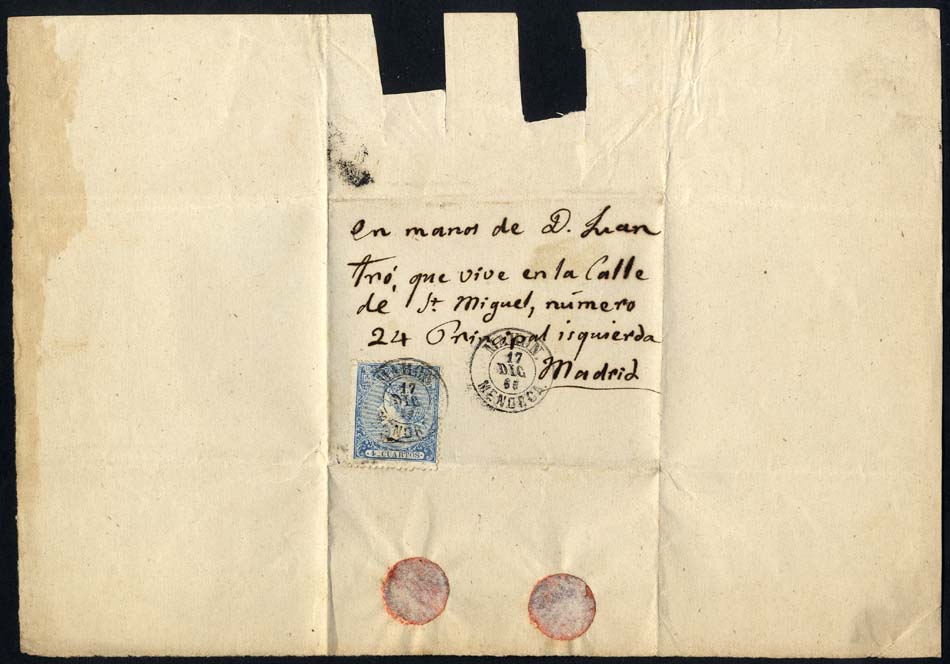 en manos de D. Juan
Tró, que vive en la Calle
de St. Miguel, número
24 Principal isquierda
Madrid
MAHON.
17
DIC
66
MENORCA.
MAHON.
17
DIC
MENORCA
4 CUARTOS